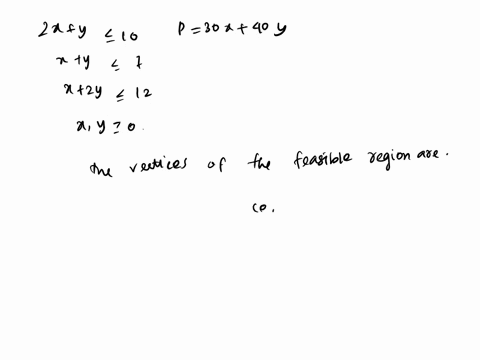 2x+y ≤ 10 P = 30x + 40y
x+y ≤ 7
x+2y ≤ 12
x, y ≥ 0.
the vertices of the feasible region are.
(0,